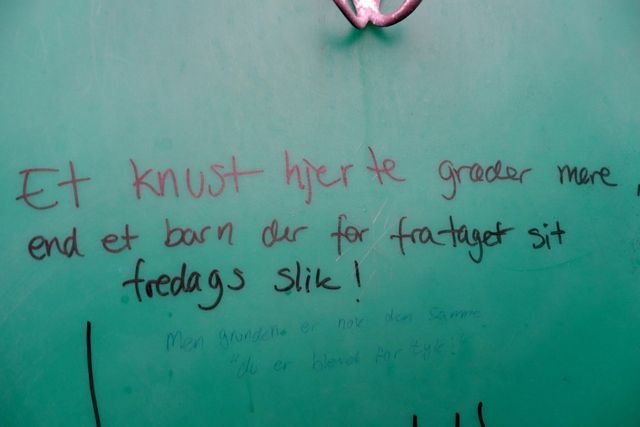 Et knust hjerte græder mere
end et barn der for frataget sit
fredags slik!
Men grunden er nok den samme
"du er blevet for tyk!"